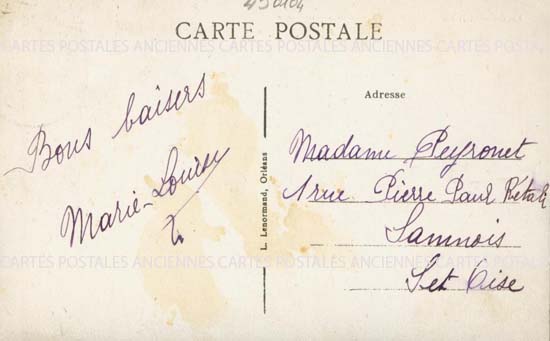 450104
CARTE POSTALE
CARTES POSTALES ANCIENNES CARTES POSTALES ANCIENNES CARTES POSTALES ANCIENNES
Bons baisers
Marie-Louise
Adresse
Madame Peyronet
1 rue Pierre Paul
Sannois
S et Oise
L. Lenormand, Orléans
CARTES POSTALES ANCIENNES CARTES POSTALES ANCIENNES CARTES POSTALES ANCIENNES